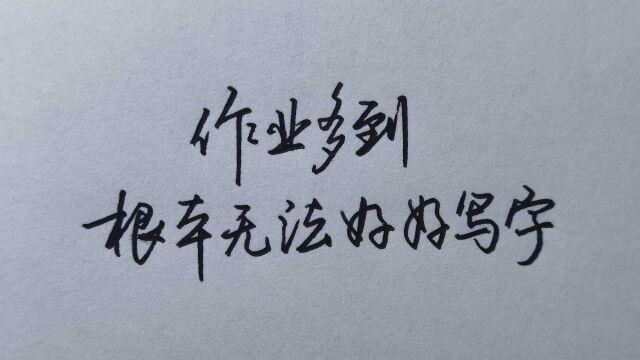 作业多到
根本无法好好写字